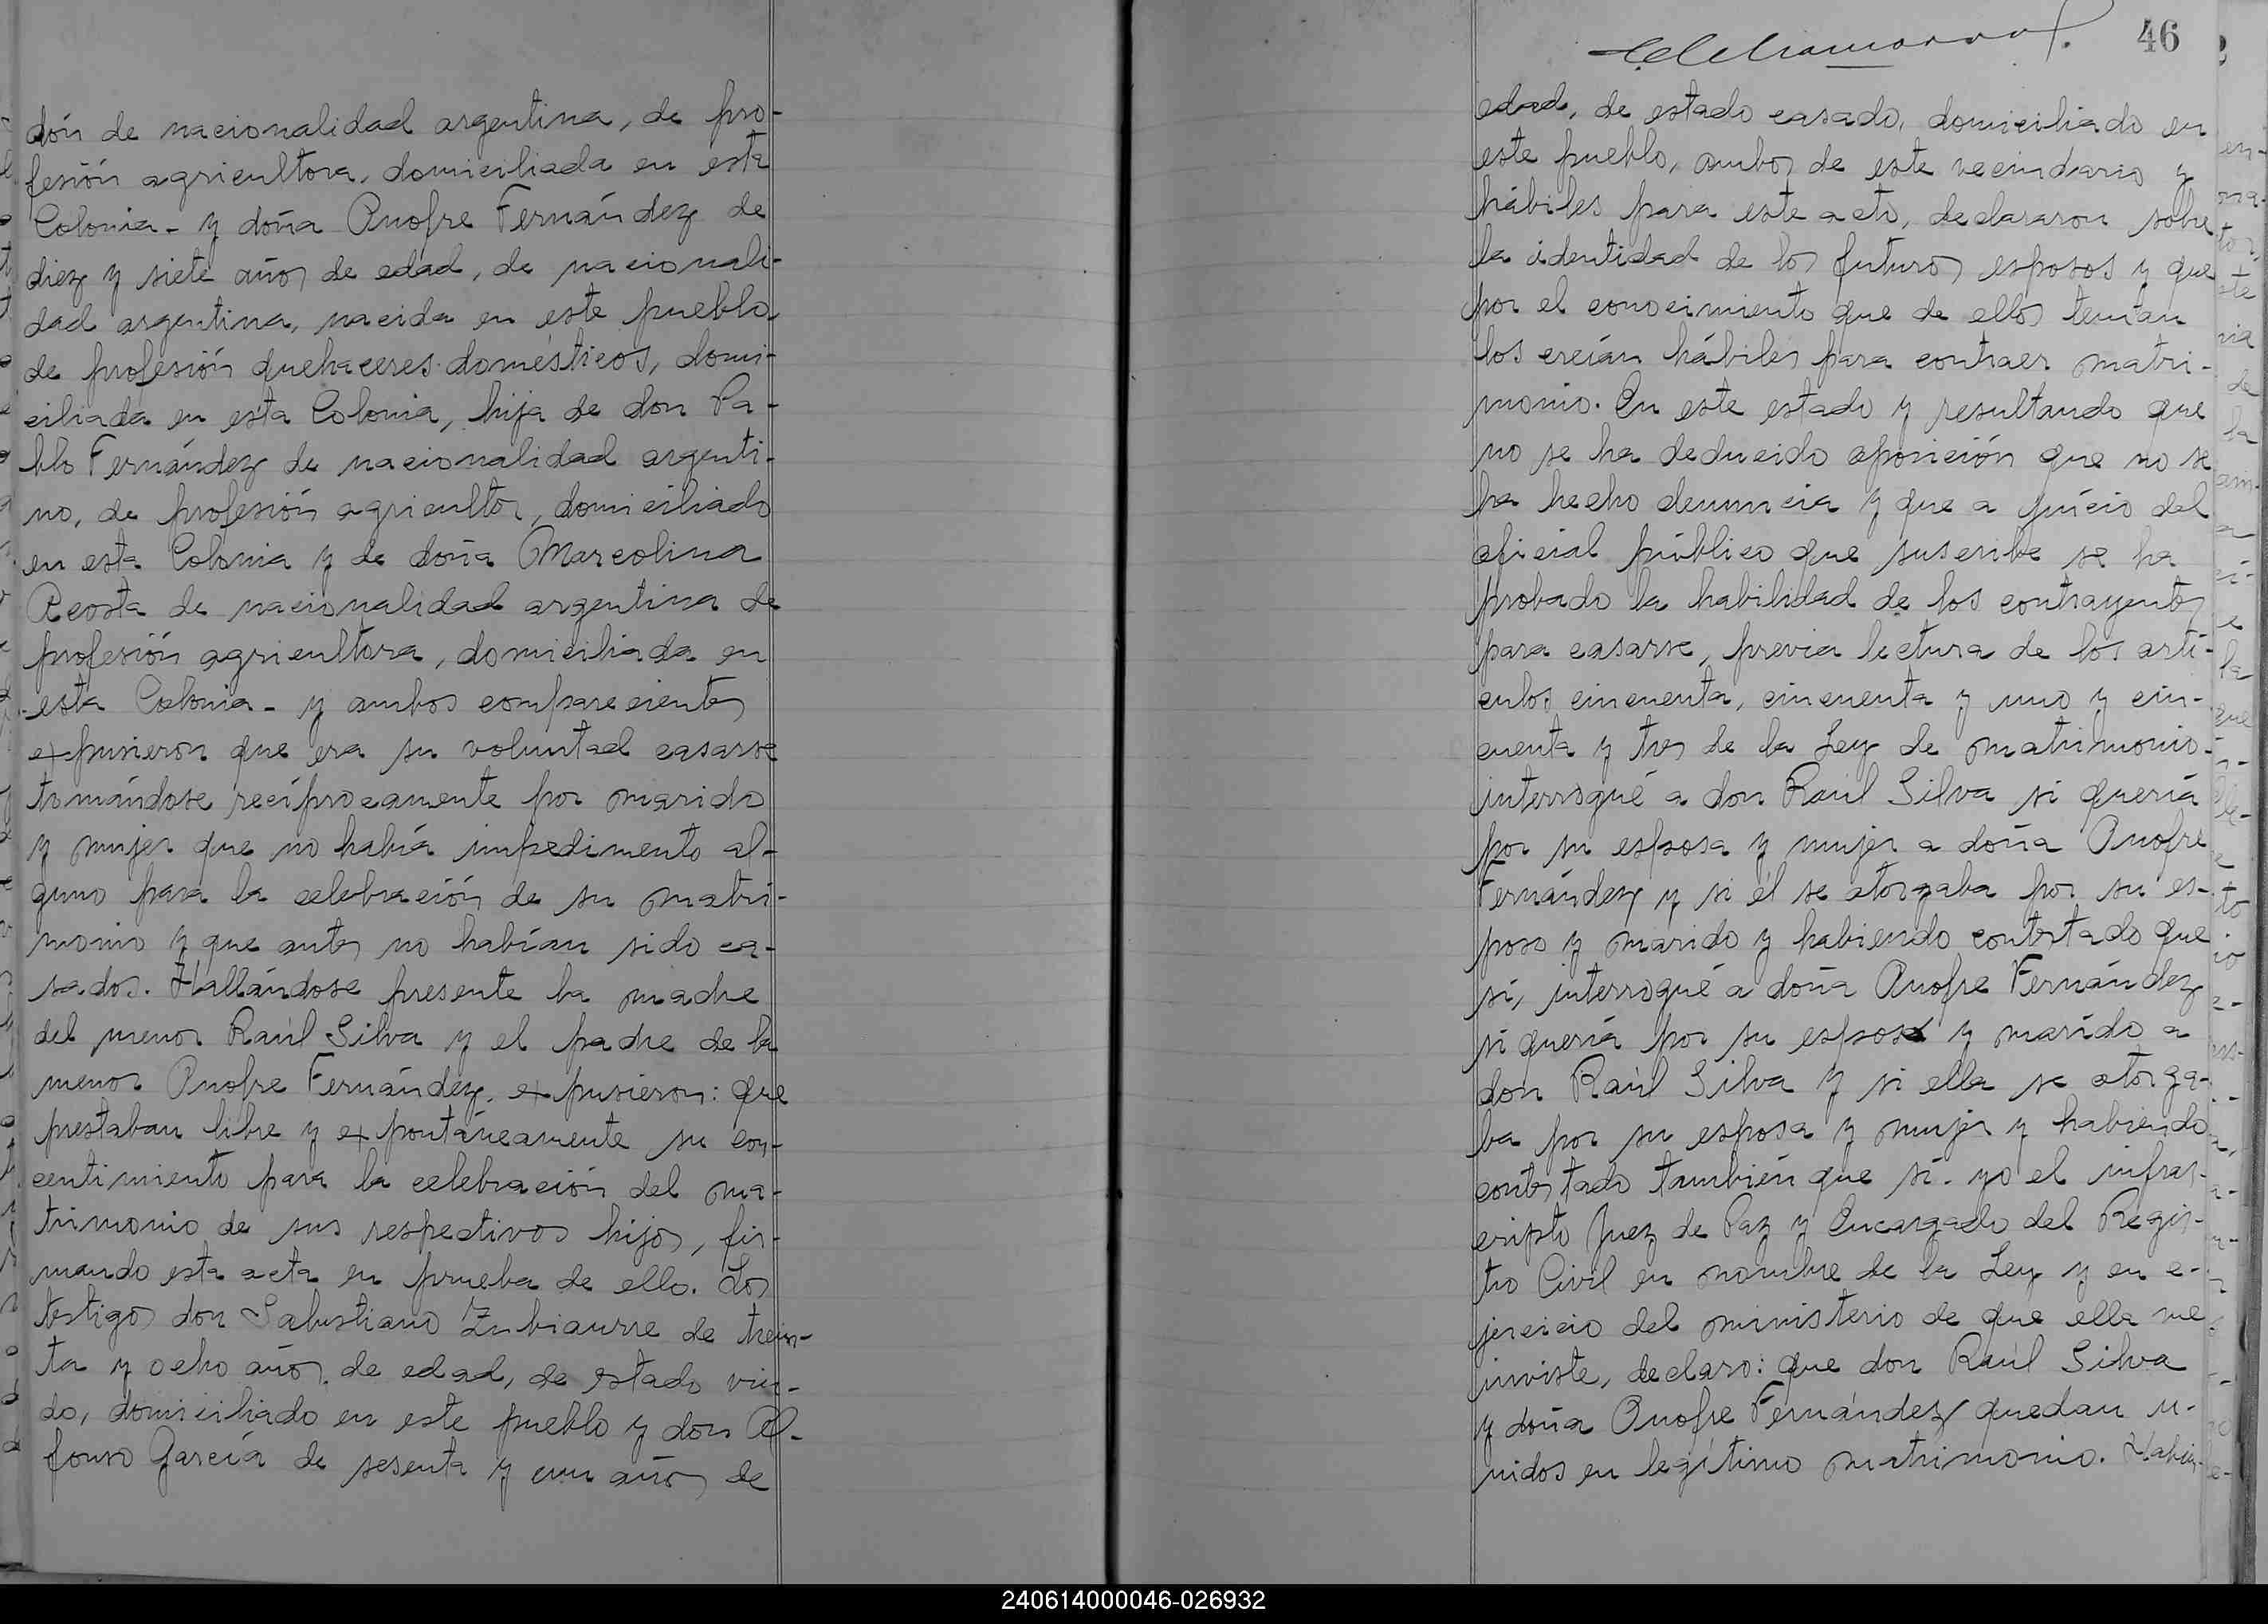 dón de nacionalidad argentina, de pro-
fesión agricultora, domiciliada en esta
Colonia - y doña Onofre Fernández de
diez y siete años de edad, de nacionali-
dad argentina, nacida en este pueblo
de profesión quehaceres domésticos, domi-
ciliada en esta Colonia, hija de don Pa-
blo Fernández de nacionalidad argenti-
no, de profesión agricultor, domiciliado
en esta Colonia y de doña Marcolina
Acosta de nacionalidad argentina de
profesión agricultora, domiciliada en
esta Colonia - y ambos comparecientes
expusieron que era su voluntad casarse
tomándose recíprocamente por marido
y mujer que no había impedimento al-
guno para la celebración de su matri-
monio y que antes no habían sido ca-
sados. Hallándose presente la madre
del menor Raúl Silva y el padre de la
menor Onofre Fernández, expusieron: que
prestaban libre y expontáneamente su con-
centimiento para la celebración del ma-
trimonio de sus respectivos hijos, fir-
mando esta acta en prueba de ello. Los
testigos don Salustiano Zubiaurre de trein-
ta y ocho años de edad, de estado viu-
do, domiciliado en este pueblo y don Al-
fonso García de sesenta y un años de
46
edad, de estado casado, domiciliado en
este pueblo, ambos de este vecindario y
hábiles para este acto, declararon sobre
la identidad de los futuros esposos y que
por el conocimiento que de ellos tenían
los creían hábiles para contraer matri-
monio. En este estado y resultando que
no se ha deducido oposición que no se
ha hecho denuncia y que a juicio del
oficial público que suscribe se ha
probado la habilidad de los contrayentes
para casarse, previa lectura de los artí-
culos cincuenta, cincuenta y uno y cin-
cuenta y tres de la Ley de matrimonio
interrogué a don Raúl Silva si quería
por su esposa y mujer a doña Onofre
Fernández y si él se otorgaba por su es-
poso y marido y habiendo contestado que
sí, interrogué a doña Onofre Fernández
si quería por su esposo y marido a
don Raúl Silva y si ella se otorga-
ba por su esposa y mujer y habiendo
contestado también que sí. yo el infras-
cripto Juez de Paz y Encargado del Regis-
tro Civil en nombre de la Ley y en e-
jercicio del ministerio de que ella me
inviste, declaro: que don Raúl Silva
y doña Onofre Fernández quedan u-
nidos en legítimo matrimonio. Habien-
240614000046-026932